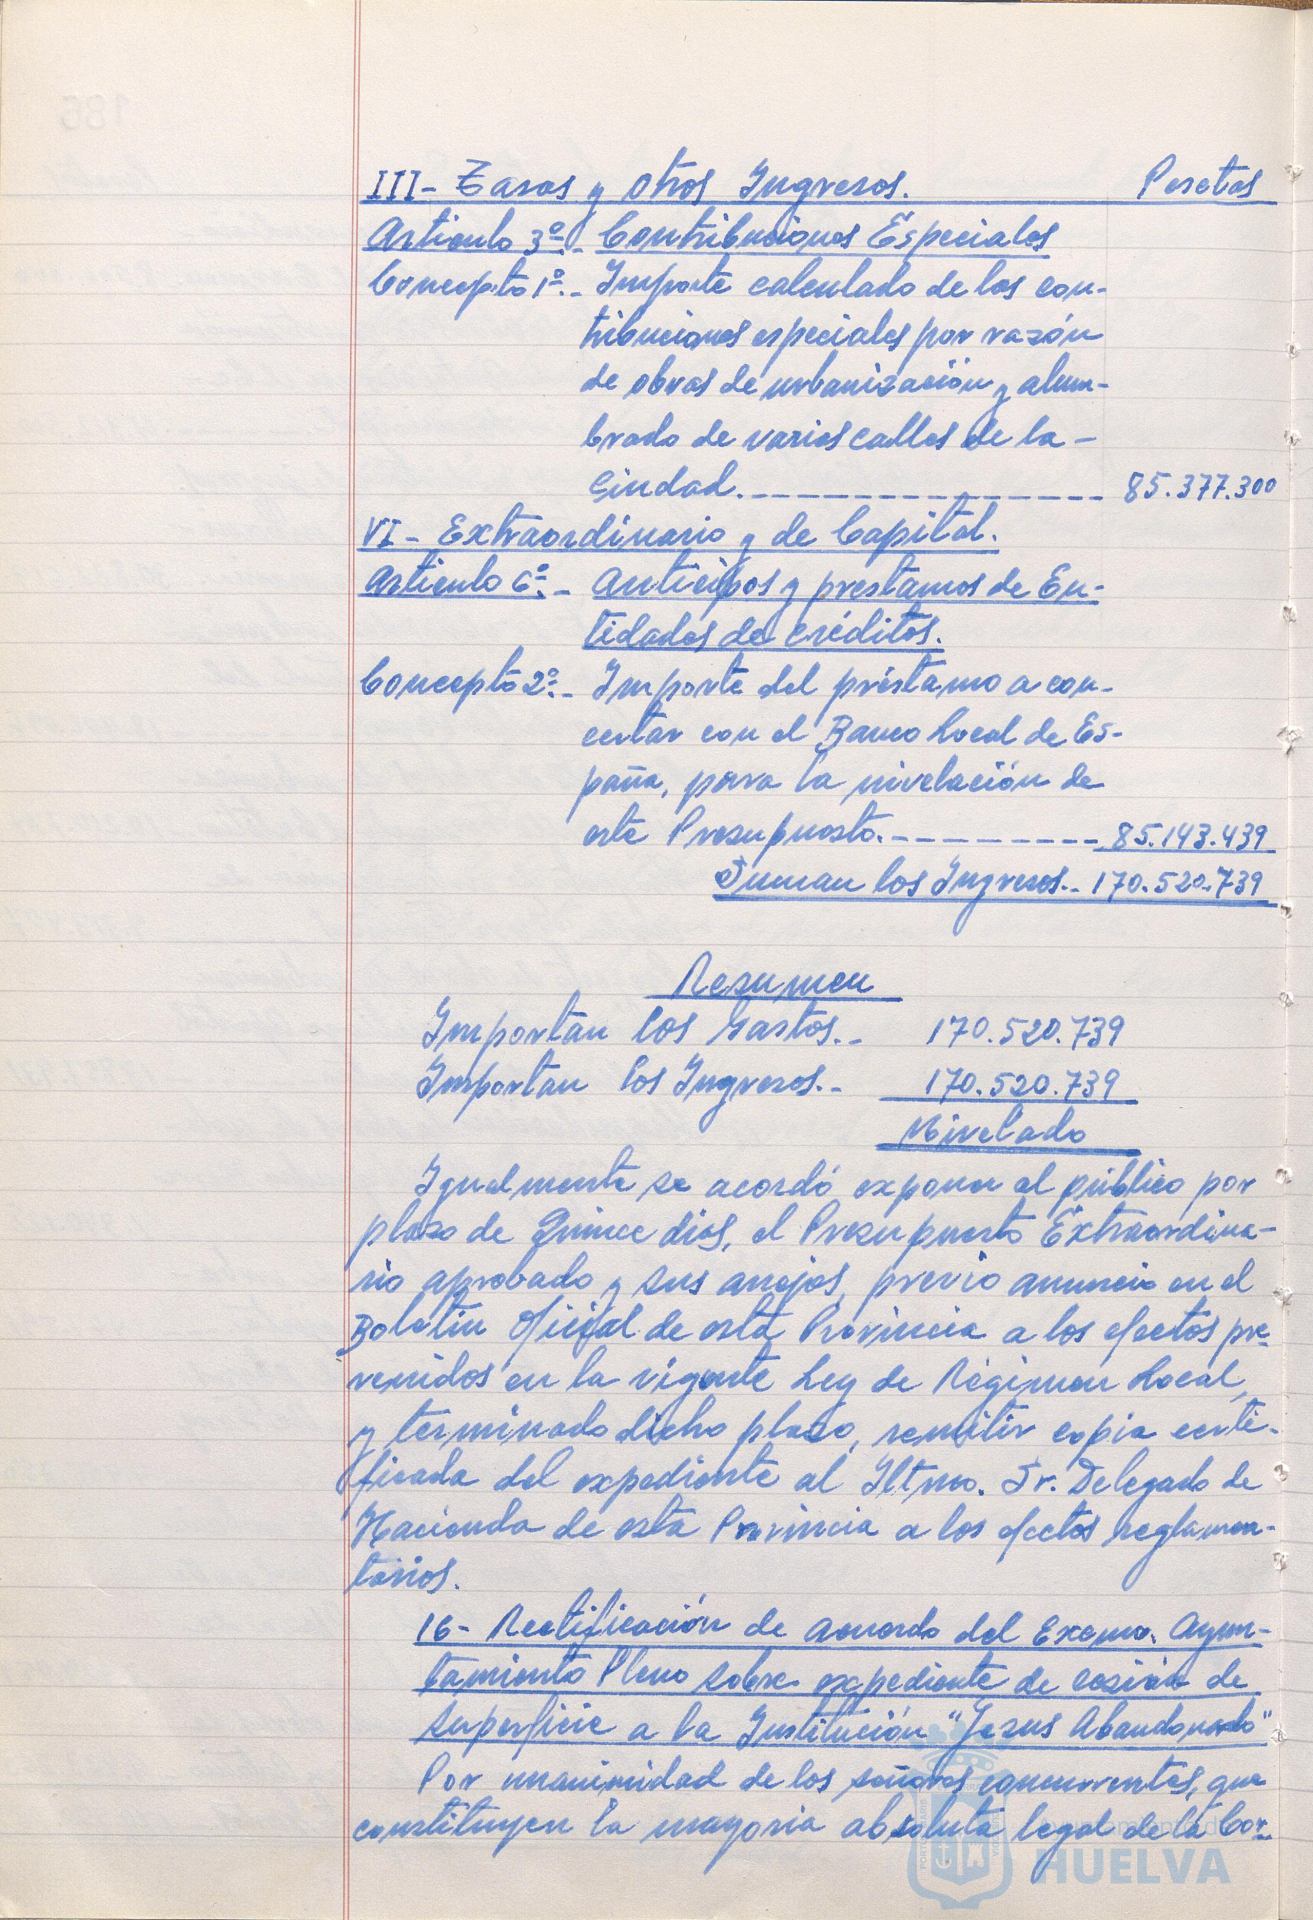 III- Tasas y otros Ingresos. Pesetas
Artículo 3º.- Contribuciones Especiales
Concepto 1º.- Importe calculado de las con-
tribuciones especiales por razón
de obras de urbanización y alum-
brado de varias calles de la -
Ciudad.---------------- 85.377.300
VI- Extraordinario y de Capital.
Artículo 6º.- Anticipos y prestamos de En-
tidades de créditos.
Concepto 2º.- Importe del préstamo a con-
certar con el Banco Local de Es-
paña, para la nivelación de
este Presupuesto.---------- 85.143.439
Suman los Ingresos.- 170.520.739
Resumen
Importan los Gastos.- 170.520.739
Importan los Ingresos.- 170.520.739
Nivelado
Igualmente se acordó exponer al público por
plazo de Quince dias, el Presupuesto Extraordina-
rio aprobado y sus anejos, previo anuncio en el
Boletin Oficial de esta Provincia a los efectos pre-
venidos en la vigente Ley de Régimen Local,
y terminado dicho plazo, remitir copia certi-
ficada del expediente al Iltmo. Sr. Delegado de
Hacienda de esta Provincia a los efectos reglamen-
tarios.
16- Rectificación de acuerdo del Excmo. Ayun-
tamiento Pleno sobre expediente de cesión de
superficie a la Institución "Jesus Abandonado"
Por unanimidad de los señores concurrentes, que
constituyen la mayoria absoluta legal de la Cor-
HUELVA